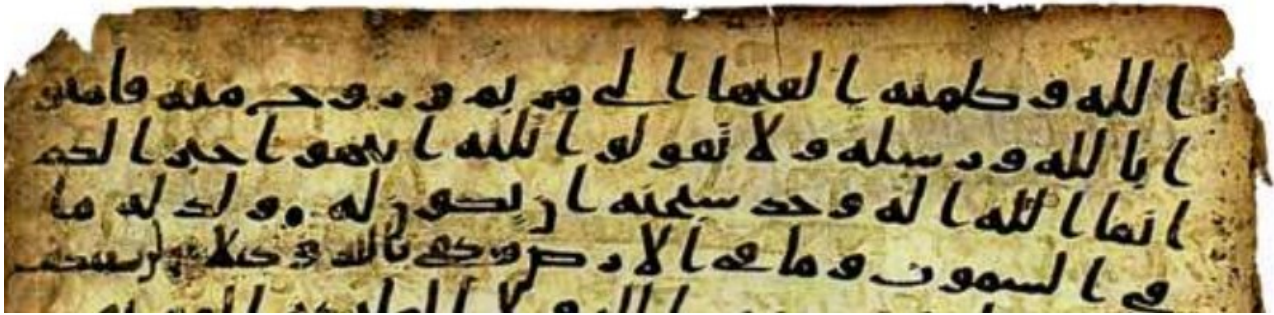 الله وكلمته القيها الى مريم وروح منه فامنو
ا بالله ورسله ولا تقولوا ثلثه انتهوا خيرا لكم
انما الله اله وحد سبحنه ان يكون له ولد له ما
في السموت وما في الارض وكفى بالله وكيلا لن يستنكف
لله ولا الملئكه